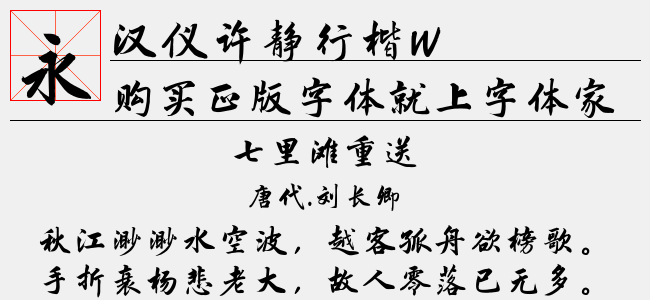 永
汉仪许静行楷W
购买正版字体就上字体家
七里滩重送
唐代.刘长卿
秋江渺渺水空波，越客孤舟欲榜歌。
手折衰杨悲老大，故人零落已无多。